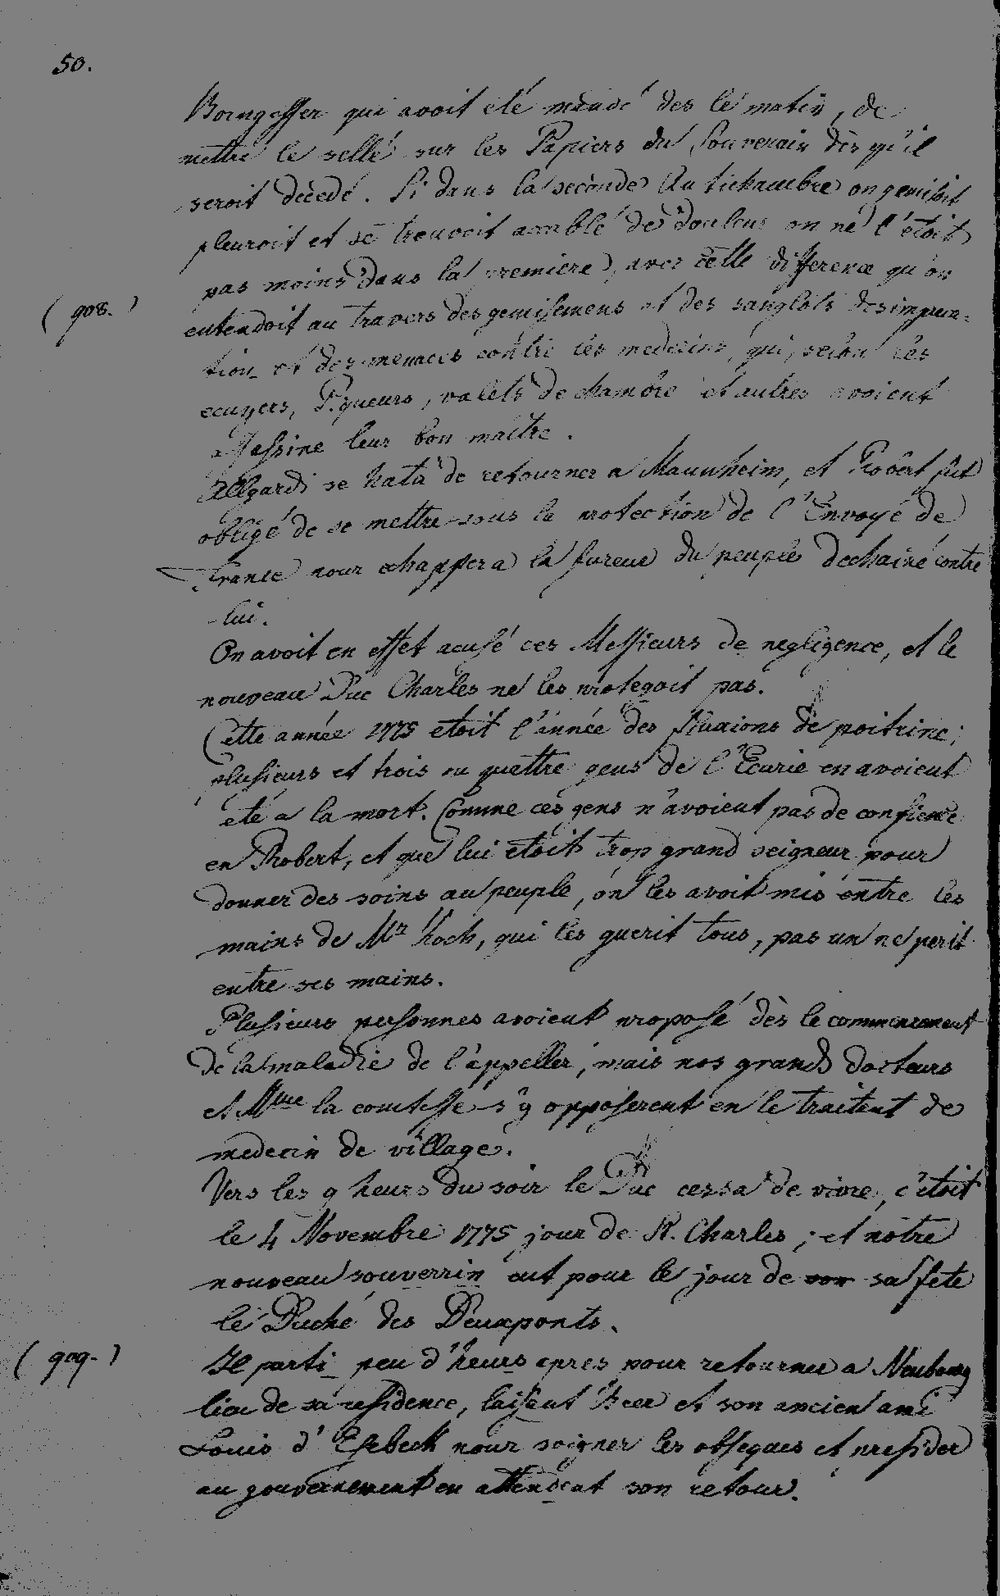 50.
qui avoit été mandé des le matin, de
mettre le sellé sur les Papiers du Souverain dès qu'il
seroit décedé. Si dans la seconde Antichambre on gemisoit
pleuroit et se trouvoit acablé de douleur on ne l'étoit
pas moins dans la premiere, avec cette difference qu'on
(908.)
entendoit au travers des gemisemens et des sanglots des impu=
tion et des menaces contre les medecins, qui, selon les
ecuyers, Piqueurs, valets de chambre et autres avoient
assassine leur bon maitre.
se hata de retourner a Mannheim, et Robert fut
obligé de se mettre sous la protection de l'Envoyé de
france pour echapper a la fureur du peuple dechainé contre
lui.
On avoit en effet acusé ces Messieurs de negligence, et le
nouveau Duc Charles ne les protegoit pas.
Cette année 1775 etoit l'année des fluxions de poitrine;
plusieurs et trois ou quettre gens de l'Ecurie en avoient
été a la mort. Comme ces gens n'avoient pas de confience
en Robert, et que lui etoit trop grand seigneur pour
donner des soins au peuple, on les avoit mis entre les
mains de Mr Koch, qui les guerit tous, pas un ne perit
entre ses mains.
Plusieurs personnes avoient proposé dès le commencement
de la maladie de l'appeller, mais nos grands docteurs
et Mme la comtesse s'y opposerent en le traitent de
medecin de village.
Vers les 9 heurs du soir le Duc cessa de vivre, c'étoit
le 4 Novembre 1775, jour de St. Charles; et notre
nouveau souverrin eut pour le jour de son sa fete
le Duché des Deuxponts.
(909.)
Il parti peu d'heurs apres pour retourner a Neubourg
lieu de sa residence, laisent et son ancien ami
Louis d'Esebeck pour soigner les obseques et presider
au gouvernement en attendent son retour.